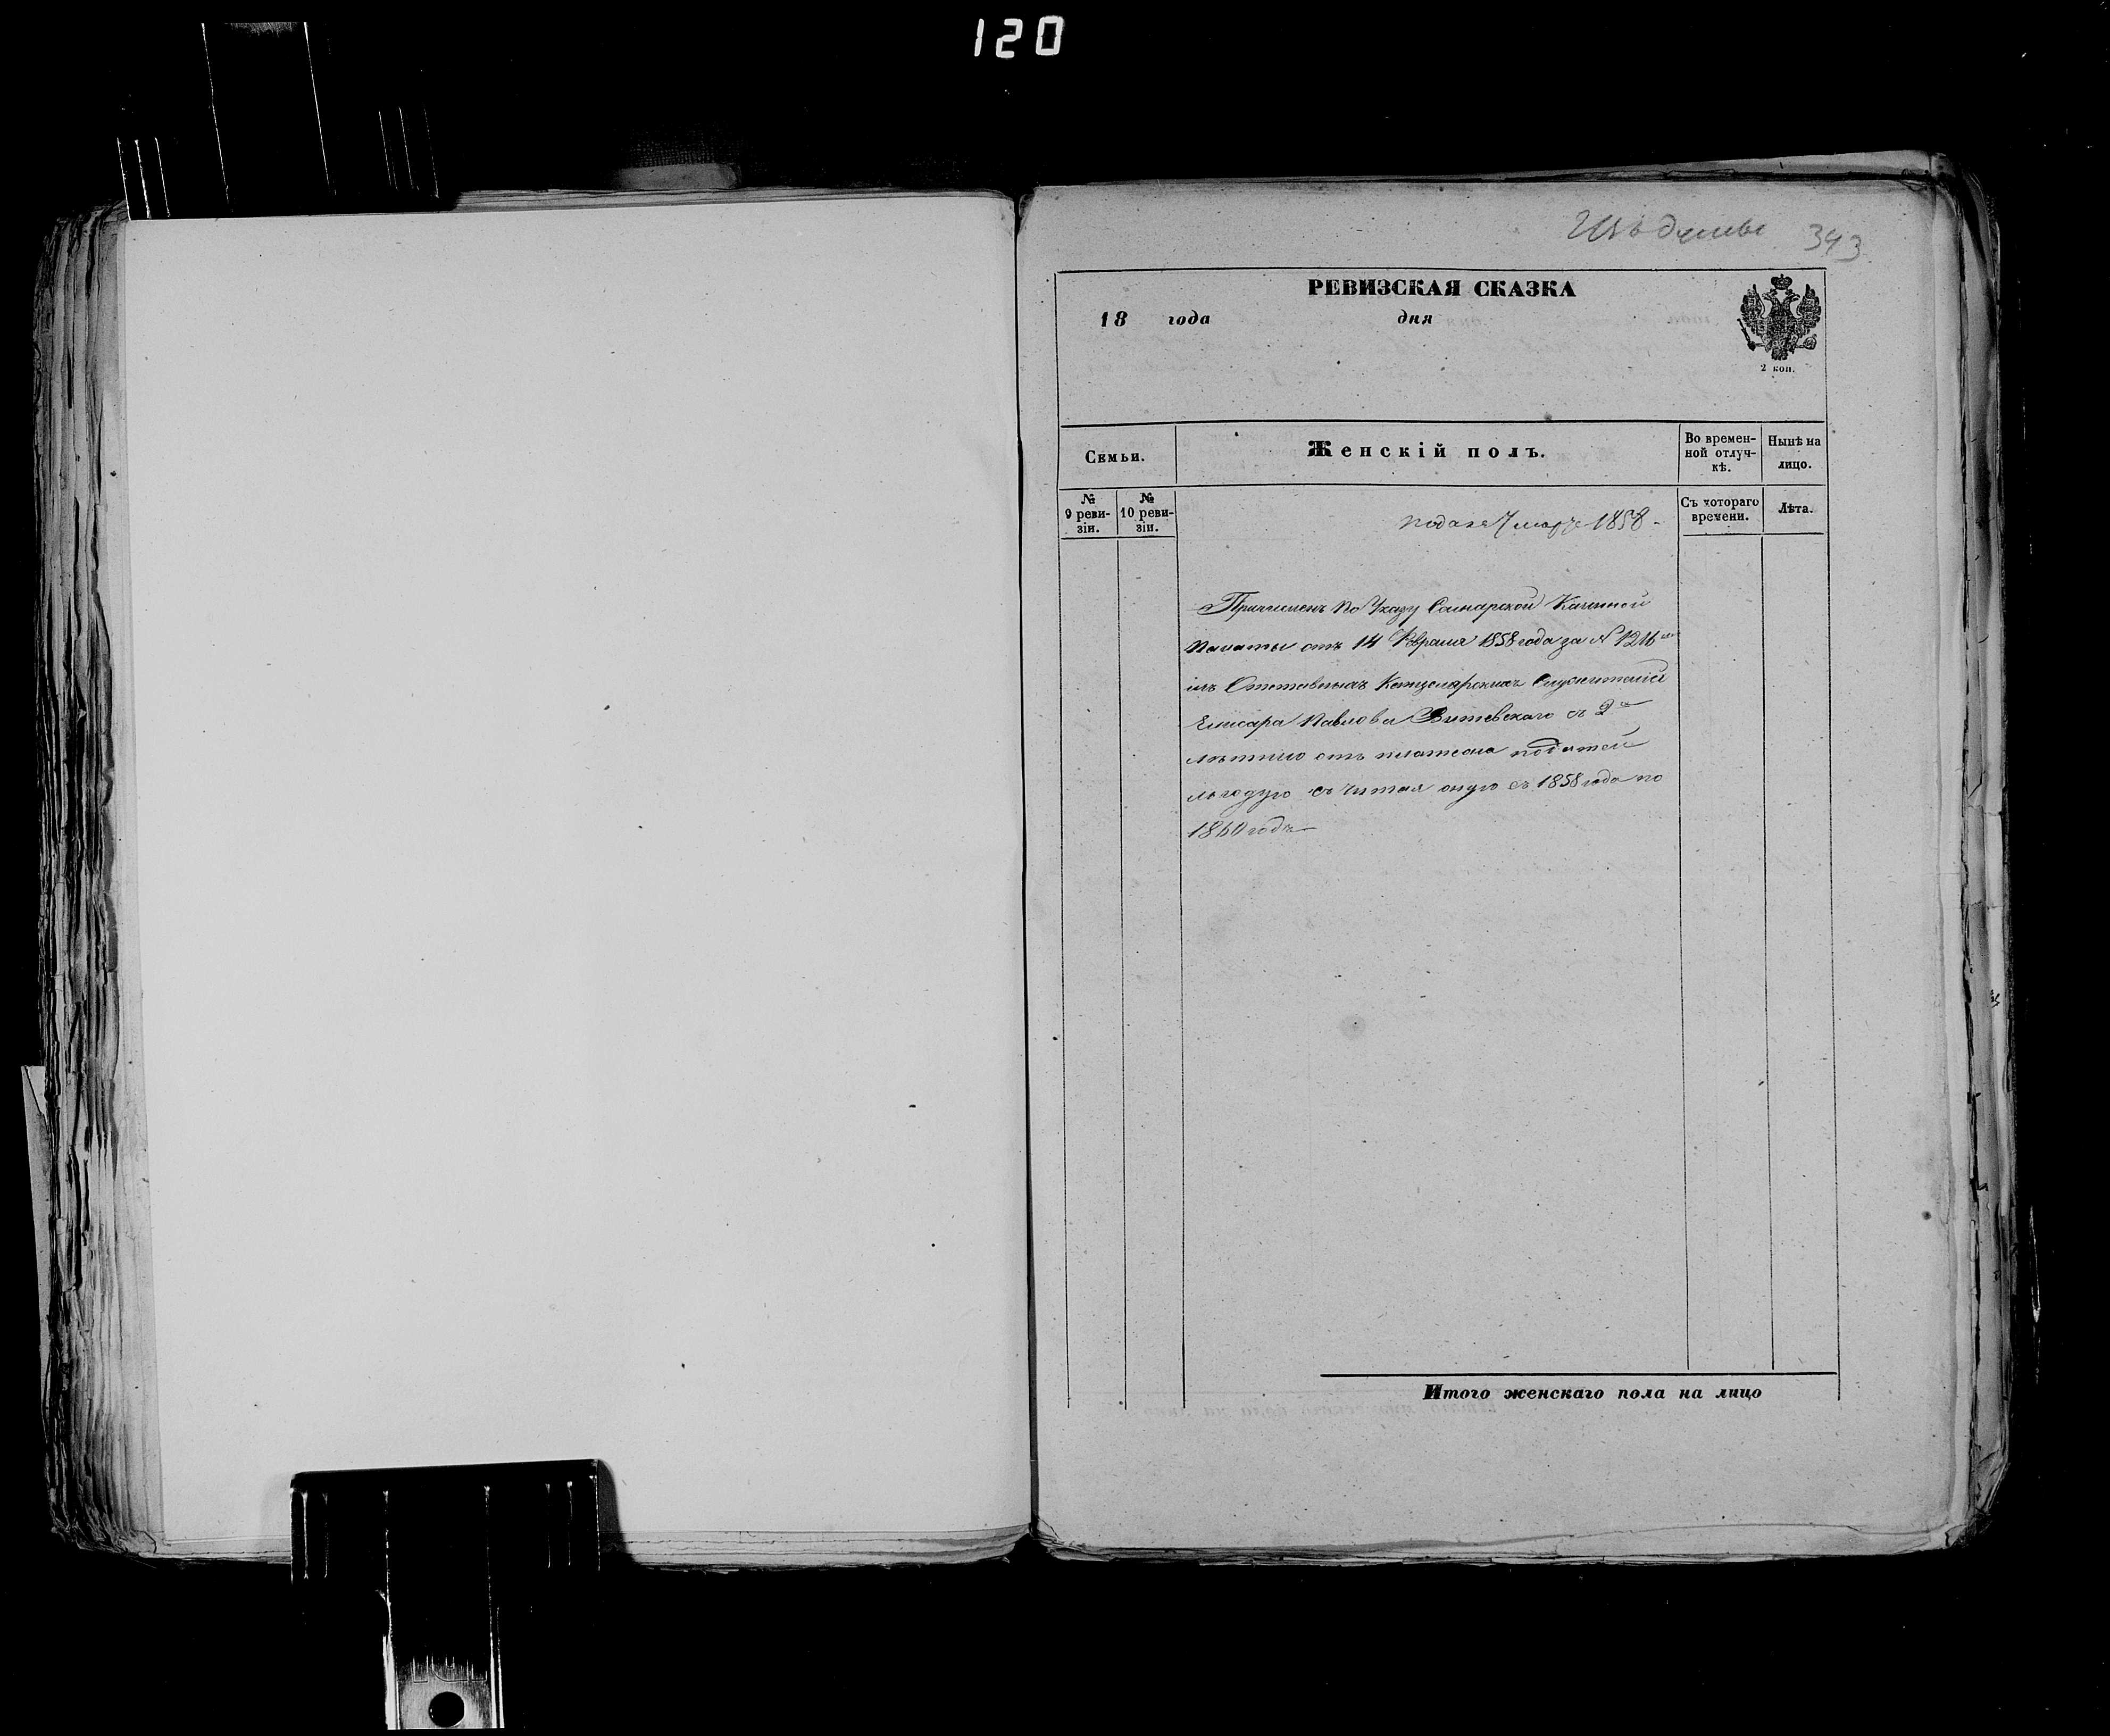 120
343
РЕВИЗСКАЯ СКАЗКА
18 года дня
2 коп.
Семьи.
Женскій полъ.
Во времен-
ной отлуч-
кѣ.
Нынѣ на
лицо.
№
9 реви-
зіи.
№
10 реви-
зіи.
Съ котораго
времени.
Лѣта.
подана 7 марта 1858
Причисленъ по Указу Самарской Казенной
Палаты отъ 14 Февраля 1858 года за N 1216
изъ Отставныхъ Канцелярскихъ Служителей
Елисара Павлова Витевскаго съ 2х
лѣтнею отъ платежа податей
льготою считая оную съ 1858 года по
1860 годъ
Итого женскаго пола на лицо